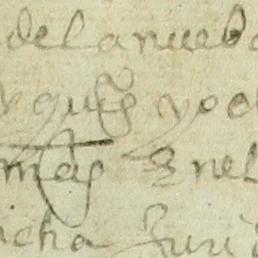 de la nueba
y qui yo d
mas En el
icha Juri